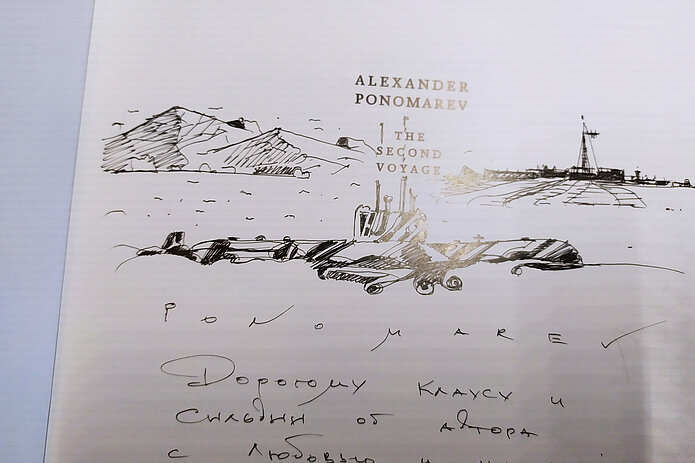 ALEXANDER
PONOMAREV
THE
SECOND
VOYAGE
PONOMAREV
Дорогому Клаусу и
Сильвии от автора
с любовью и